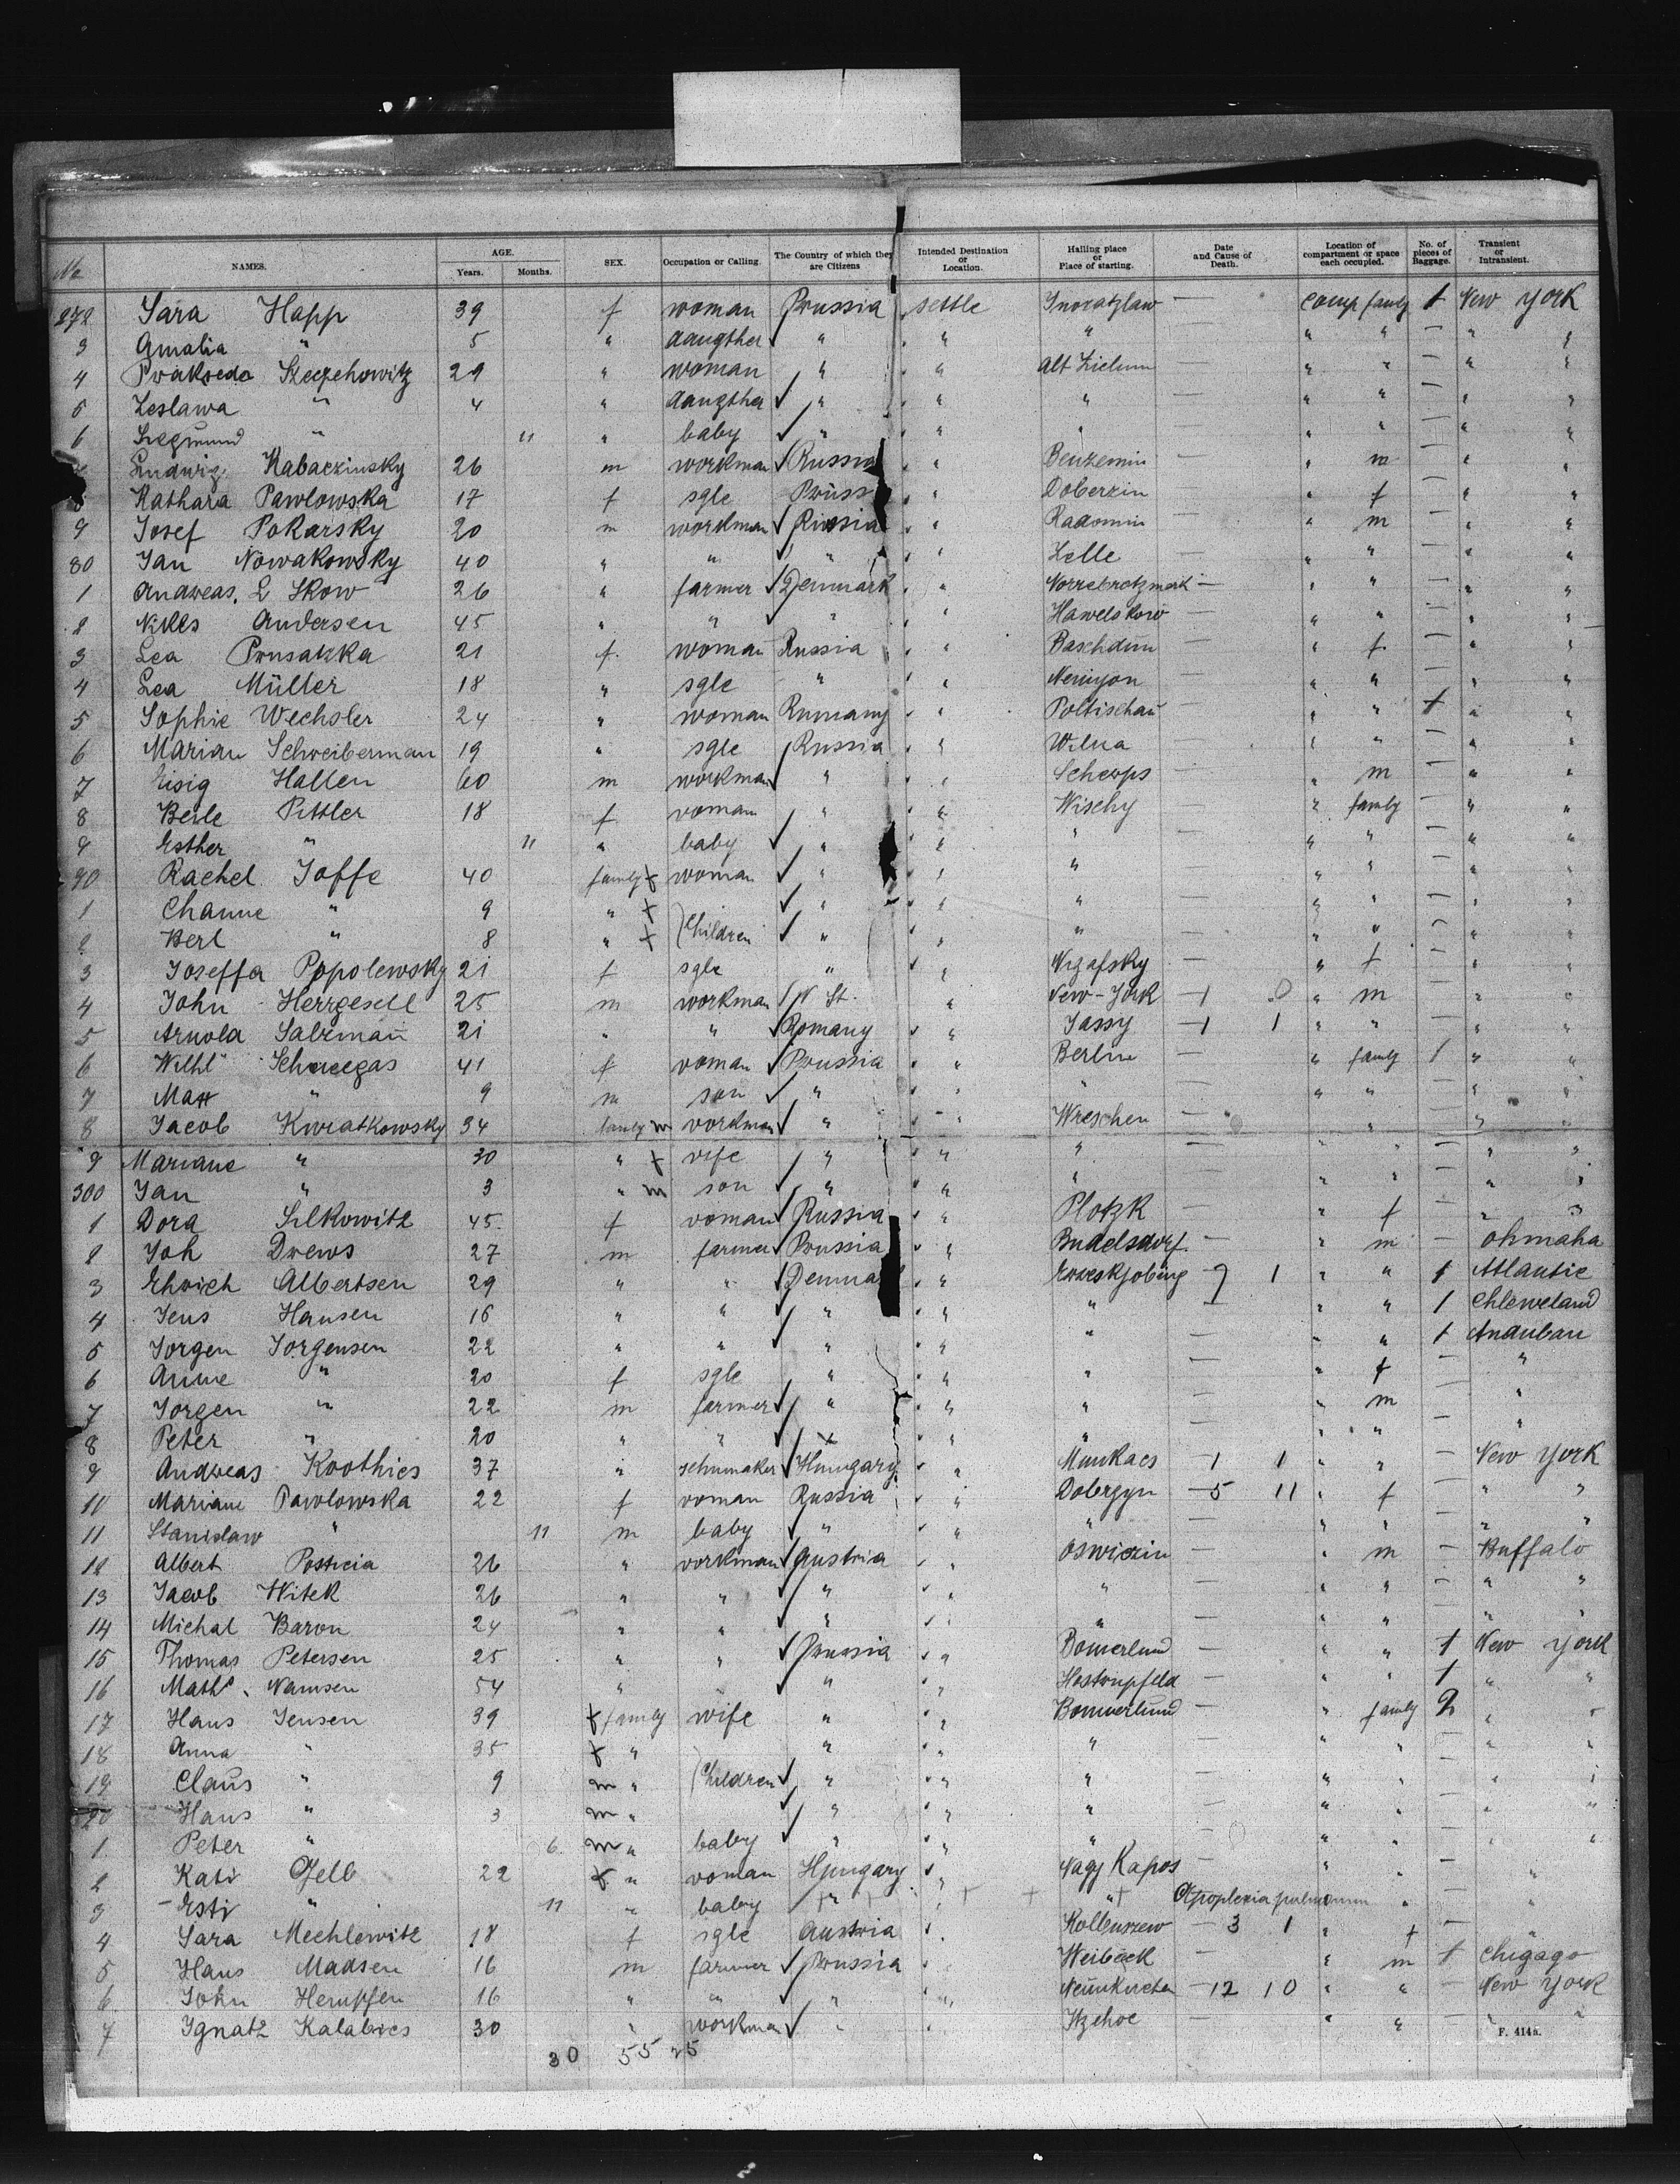 No NAMES. AGE. Years. Months. SEX. Occupation or Calling. The Country of which they are Citizens Intended Destination or Location. Hailing place or Place of starting. Date and Cause of Death. Location of compartment or space each occupied. No. of pieces of Baggage. Transient or Intransient.
272 Sara Happ 39 f woman Prussia settle Inoratzlaw — comp famly 1 New York
3 Amalia " 5 " daugther " " " — " " — " "
4 Praxseda Szczechowitz 29 " woman " " Alt Zielum — " " — " "
5 Zeslawa " 4 " daugther ✓ " " " — " " — " "
6 Siegmund " 11 " baby ✓ " " " " " — " "
Ludwig Kabaczinsky 26 m workman ✓ Russia " Benzemin — " m — " "
8 Kathara Pawlowska 17 f sgle Prüss " Doberzin — " f — " "
9 Josef Pokarsky 20 m workman ✓ Russia " Radomin — " m — " "
80 Jan Nowakowsky 40 " " ✓ " " Zelle — " " — " "
1 Andreas. L Skow 26 " farmer ✓ Denmark " — " " — " "
2 Nikls Andersen 45 " " ✓ " " — " " — " "
3 Lea Prusakka 21 f. woman Russia " Baschdun — " f. — " "
4 Lea Müller 18 " sgle " " — " " — " "
5 Sophie Wechsler 24 " woman Rumany " Poltischaü — " " 1 " "
6 Marian Schreiberman 19 " sgle ✓ Russia " Wilna — " " — " "
7 Eisig Hallen 60 m workman ✓ " " Scherps — " m — " "
8 Berle Pittler 18 f voman " " Wischy — " famly — " "
9 Esther " 11 " baby ✓ " " " — " " — " "
90 Rachel Joffe 40 famly f woman ✓ " " " — " " — " "
1 Channe " 9 " f ✓ " " " — " " — " "
2 Berl " 8 " f Children ✓ " " " — " " — " "
3 Joseffa Popolewsky 21 f sgle " " Nizafsky — " f — " "
4 John Herrgesell 25 m workman ✓ V St. " New-York — 1 0 " m — " "
5 Arnold Salzmañ 21 " " ✓ Romany " Jassy — 1 1 " " — " "
6 Wilhl Schneegas 41 f voman Prussia " Berlin — " famly 1 " "
7 Max " 9 m son ✓ " " " — " " — " "
8 Jacob Kwiatkowsky 34 famly m vorkman ✓ " " Wreschen — " " — " "
9 Mariane " 30 " f vife ✓ " " " — " " — " "
300 Jan " 3 " m son ✓ " " " — " " — " "
1 Dora Silkowitz 45. f voman ✓ Russia " Plotzk — " f — " "
2 Joh Drews 27 m farmer ✓ Prussia " Budelsdorf. — " m — ohmaha
3 Ehrich Albertsen 29 " " ✓ Denmark " 7 1 " " 1 Atlantic
4 Jens Hansen 16 " " ✓ " " " — " " 1 Chleweland
5 Jorgen Jorgensen 22 " " ✓ " " " — " " 1 Anduban
6 Anne " 20 f sgle " " " — " f — "
7 Jorgen " 22 m farmer ✓ " " " — " m — "
8 Peter " 20 " " ✓ " " " — " " — "
9 Andreas Koothies 37 " schumaker ✓ Hungary " Munkacs — 1 1 " " — New York
10 Mariane Pawlowska 22 f voman Russia " Dobrzyn — 5 11 " f — " "
11 Stanislaw " 11 m baby ✓ " " " — " " — " "
12 Albert 26 " vorkman ✓ Austria " Oswiezin — " m — Buffalo
13 Jacob Witek 26 " " ✓ " " " — " " — " "
14 Michal Baron 24 " " ✓ " " " — " " — " "
15 Thomas Petersen 25 " " ✓ Prussia " Bomerlund — " " 1 New York
16 Maths. Namsen 54 " " ✓ " " Hostrupfeld — " " 1 " "
17 Hans Jensen 39 f famly wife " " Bommerlund — " famly 2 " "
18 Anna " 35 f " " " " — " " — " "
19 Claus " 9 m " Children ✓ " " " — " " — " "
20 Hans " 3 m " ✓ " " " — " " — " "
1 Peter " 6. m " baby ✓ " " " — " " — " "
2 Kati Gelb 22 f " voman Hungary " Nagy Kapos — " " — "
3 — Esti " 11 " baby " " Apoplexia pulmonum " — "
4 Sara Mechlewitz 18 f sgle Austria " Kolbuszew — 3 1 " f — "
5 Hans Madsen 16 m farmer ✓ Prussia " Weibeck — " m 1 Chigago
6 John Hempfen 16 " " ✓ " " Neunkirchen — 12 10 " " — New York
7 Ignatz Kalabies 30 " workman ✓ " " Itzehoe — " " — " "
F. 414a.
30 55 25